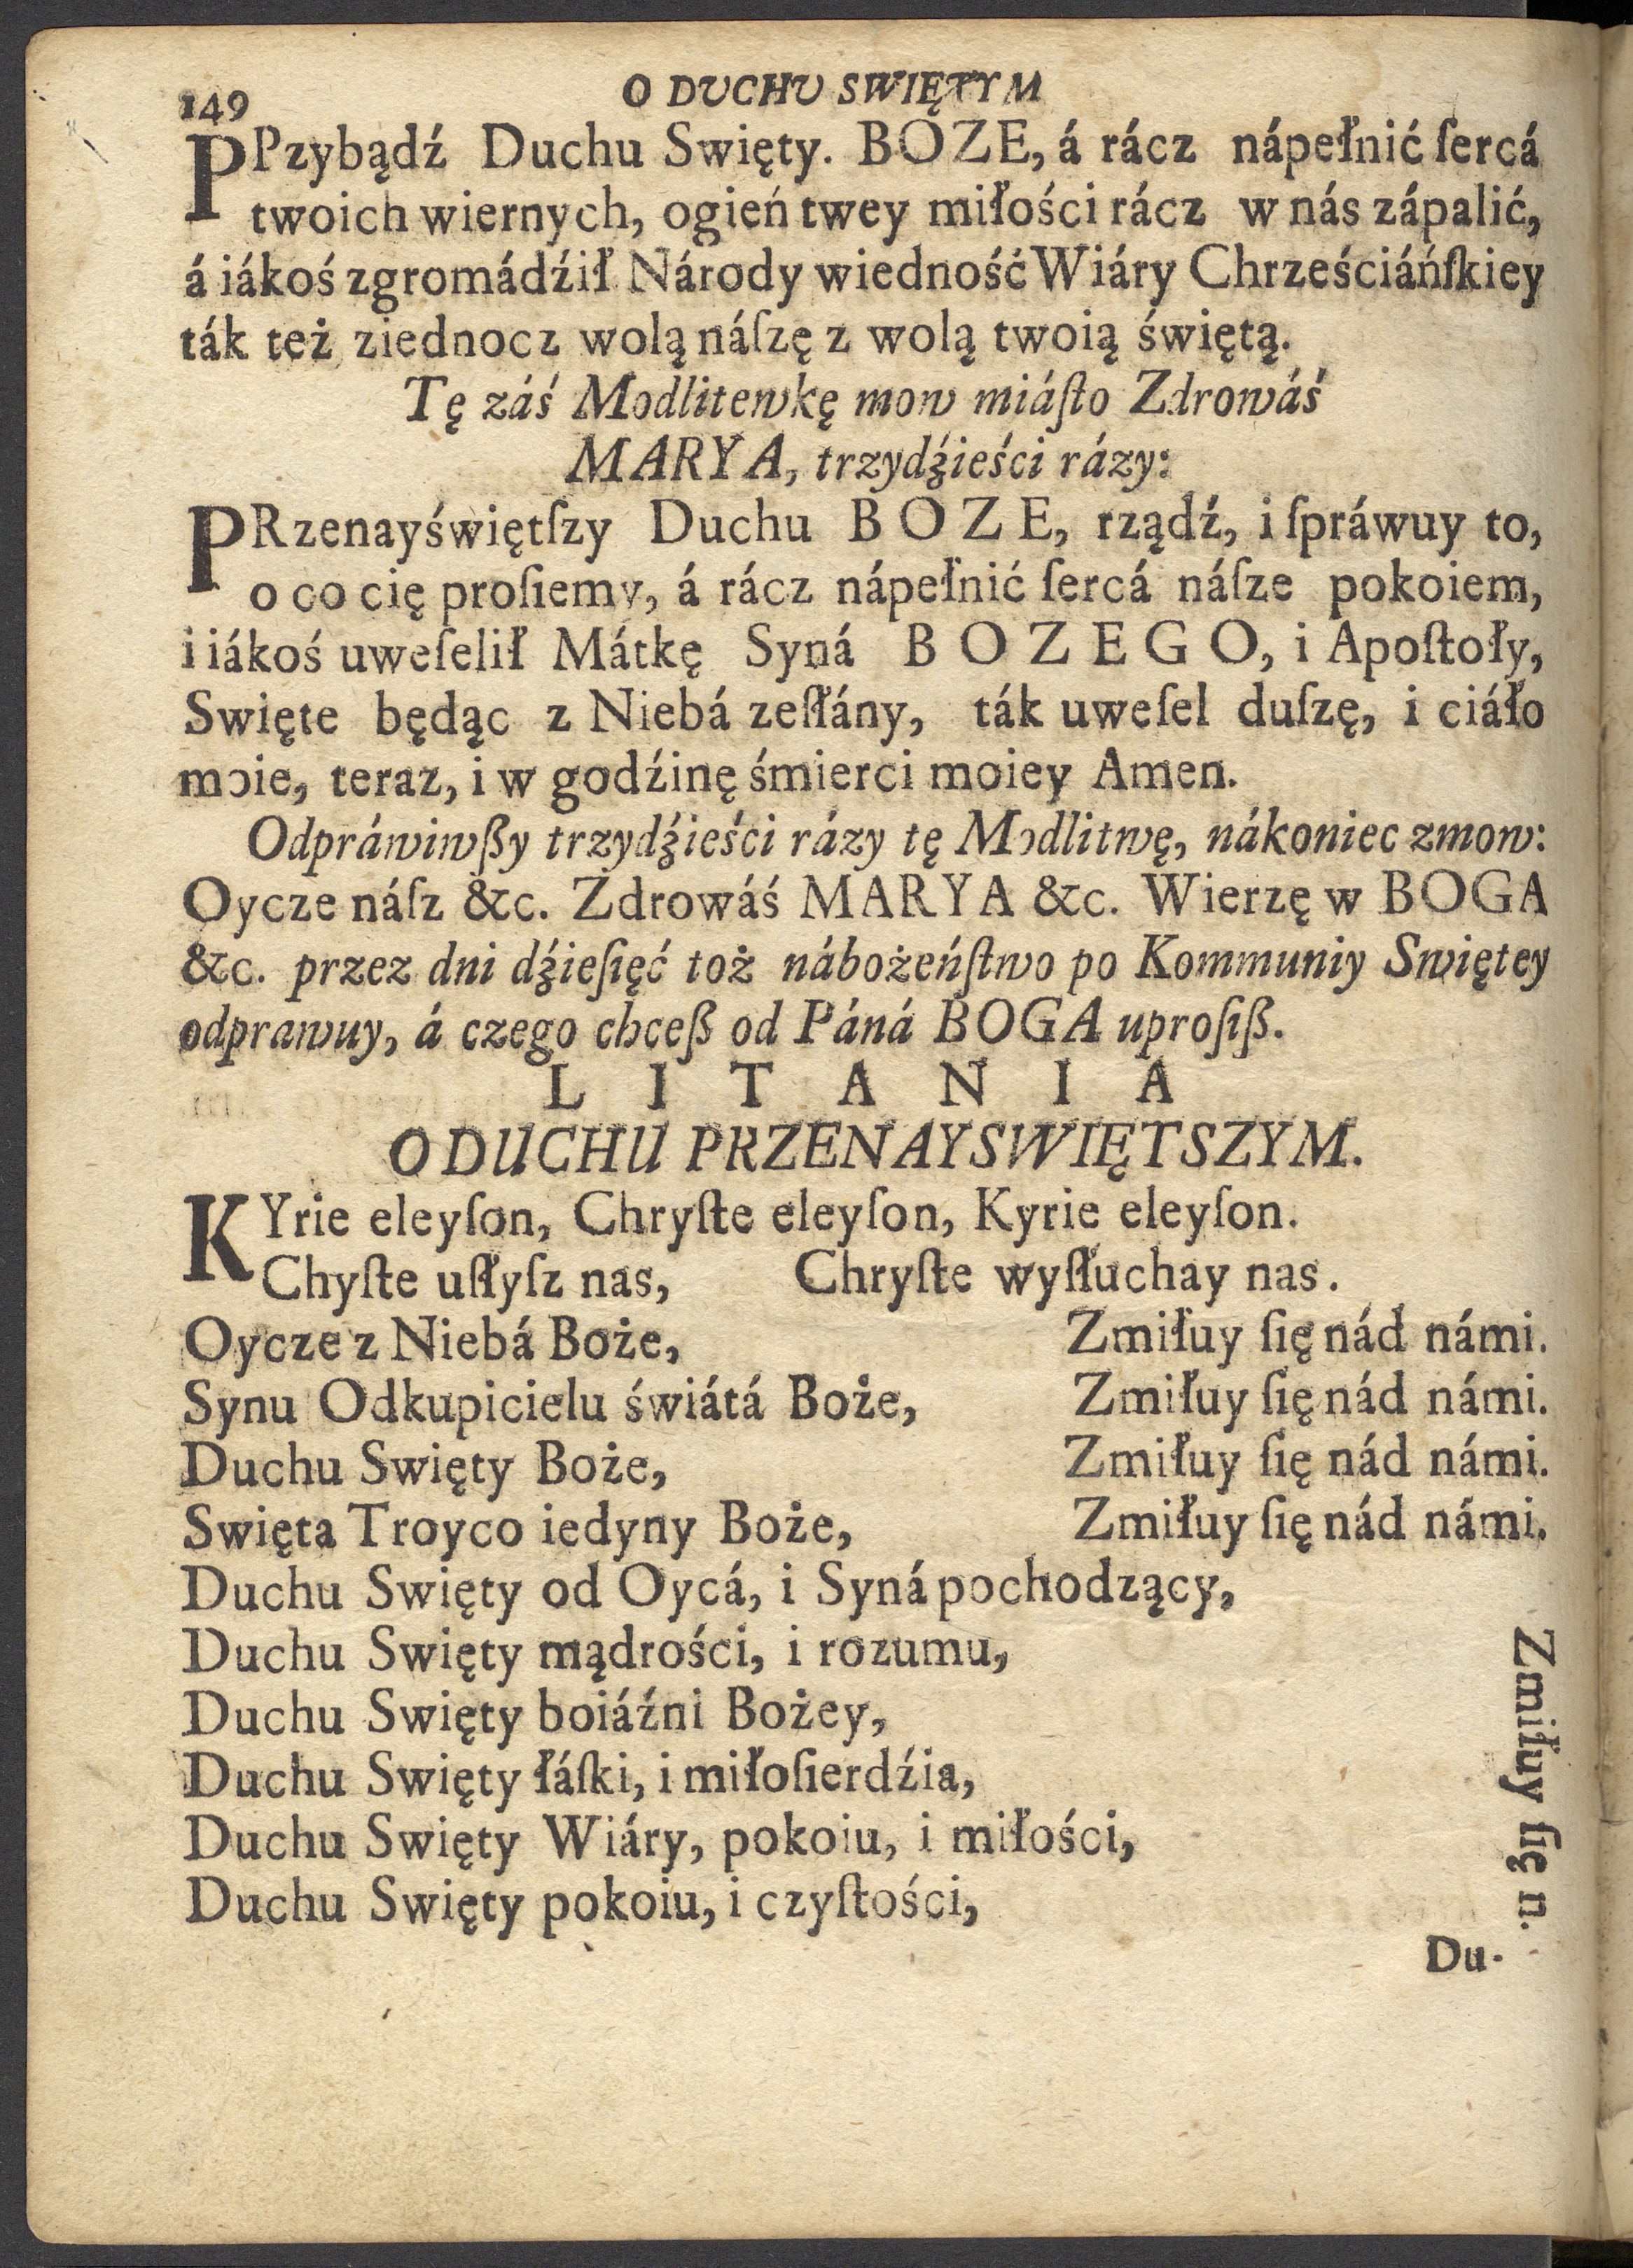 149 O DUCHU SWIĘTYM
PPzybądź Duchu Swięty. BOZE, á rácz nápełnić ſercá
twoich wiernych, ogień twey miłości rácz w nás zápalić,
á iákoś zgromádźił Národy wiedność Wiáry Chrześciáńſkiey
ták też ziednocz wolą náſzę z wolą twoią świętą.
Tę záś Modlitewkę mow miáſto Zdrowáś
MARYA, trzydźieści rázy:
PRzenayświętſzy Duchu BOZE, rządź, i ſpráwuy to,
o co cię proſiemy, á rácz nápełnić ſercá náſze pokoiem,
i iákoś uweſelił Mátkę Syná BOZEGO, i Apoſtoły,
Swięte będąc z Niebá zeſłány, ták uweſel duſzę, i ciáło
moie, teraz, i w godźinę śmierci moiey Amen.
Odpráwiwßy trzydźieści rázy tę Modlitwę, nákoniec zmow:
Oycze náſz &c. Zdrowáś MARYA &c. Wierzę w BOGA
&c. przez dni dźieſięć toż nábożeńſtwo po Kommuniy Swiętey
odprawuy, á czego chceß od Páná BOGA uproſiß.
LITANIA
O DUCHU PRZENAYSWIĘTSZYM.
KYrie eleyſon, Chryſte eleyſon, Kyrie eleyſon.
Chyſte uſłyſz nas, Chryſte wyſłuchay nas.
Oycze z Niebá Boże, Zmiłuy ſię nád námi.
Synu Odkupicielu świátá Boże, Zmiłuy ſię nád námi.
Duchu Swięty Boże, Zmiłuy ſię nád námi.
Swięta Troyco iedyny Boże, Zmiłuy ſię nád námi.
Duchu Swięty od Oycá, i Syná pochodzący,
Duchu Swięty mądrości, i rozumu,
Duchu Swięty boiáźni Bożey,
Duchu Swięty łáſki, i miłoſierdźia,
Duchu Swięty Wiáry, pokoiu, i miłości,
Duchu Swięty pokoiu, i czyſtości,
Zmiłuy ſię n.
Du-